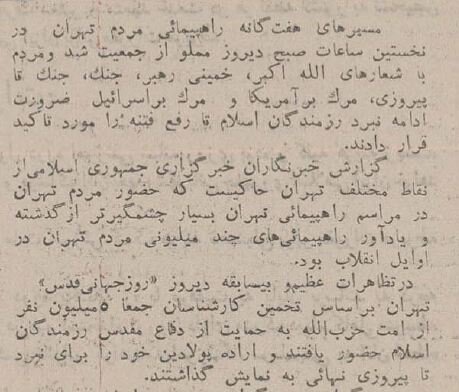 مسیرهای هفت‌گانه راهپیمائی مردم تهران در
نخستین ساعات صبح دیروز مملو از جمعیت شد ومردم
با شعارهای الله اکبر، خمینی رهبر، جنك، جنك تا
پیروزی، مرك برآمریکا و مرك براسرائیل ضرورت
ادامه نبرد رزمندگان اسلام تا رفع فتنه را مورد تاکید
قرار دادند.
گزارش خبرنگاران خبرگزاری جمهوری اسلامی‌از
نقاط مختلف تهران حاکیست که حضور مردم تهران
در مراسم راهپیمائی تهران بسیار چشمگیرتر ازگذشته
و یادآور راهپیمائی‌های چند میلیونی مردم تهران در
اوایل انقلاب بود.
درتظاهرات عظیم‌و بیسابقه دیروز «روزجهانی‌قدس»
تهران براساس تخمین کارشناسان جمعا ۵میلیون نفر
از امت حزب‌الله به حمایت از دفاع مقدس رزمندگان
اسلام حضور یافتند و اراده پولادین خود را برای نبرد
تا پیروزی نهائی به نمایش گذاشتند.